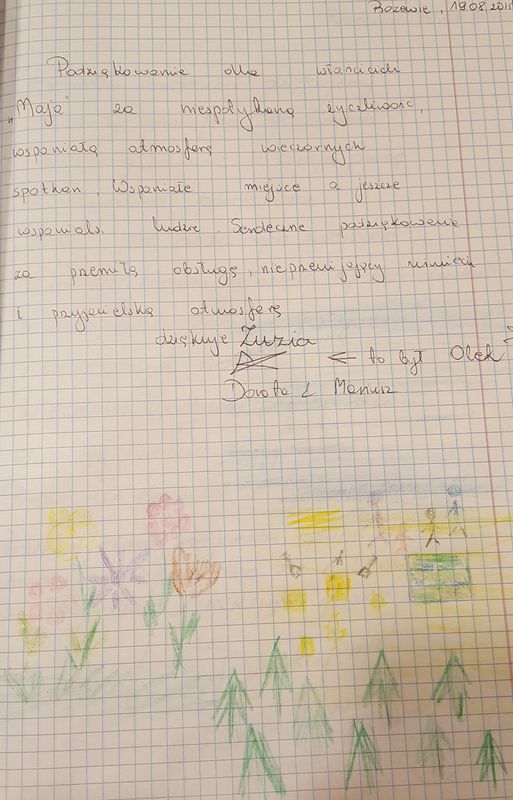 Bozewie, 19.08.2011
Podziękowanie dla właścicieli
"Maje" za niespotykaną życzliwość,
wspaniałą atmosferę wieczornych
spotkań. Wspaniałe miejsce a jeszcze
wspaniali ludzie. Serdeczne podziękowanie
za przemiłą obsługę, nieprzemijający uśmiech
i przyjacielską atmosferę
dziękuje Zuzia
← to był Olek
Dorota i Mariusz